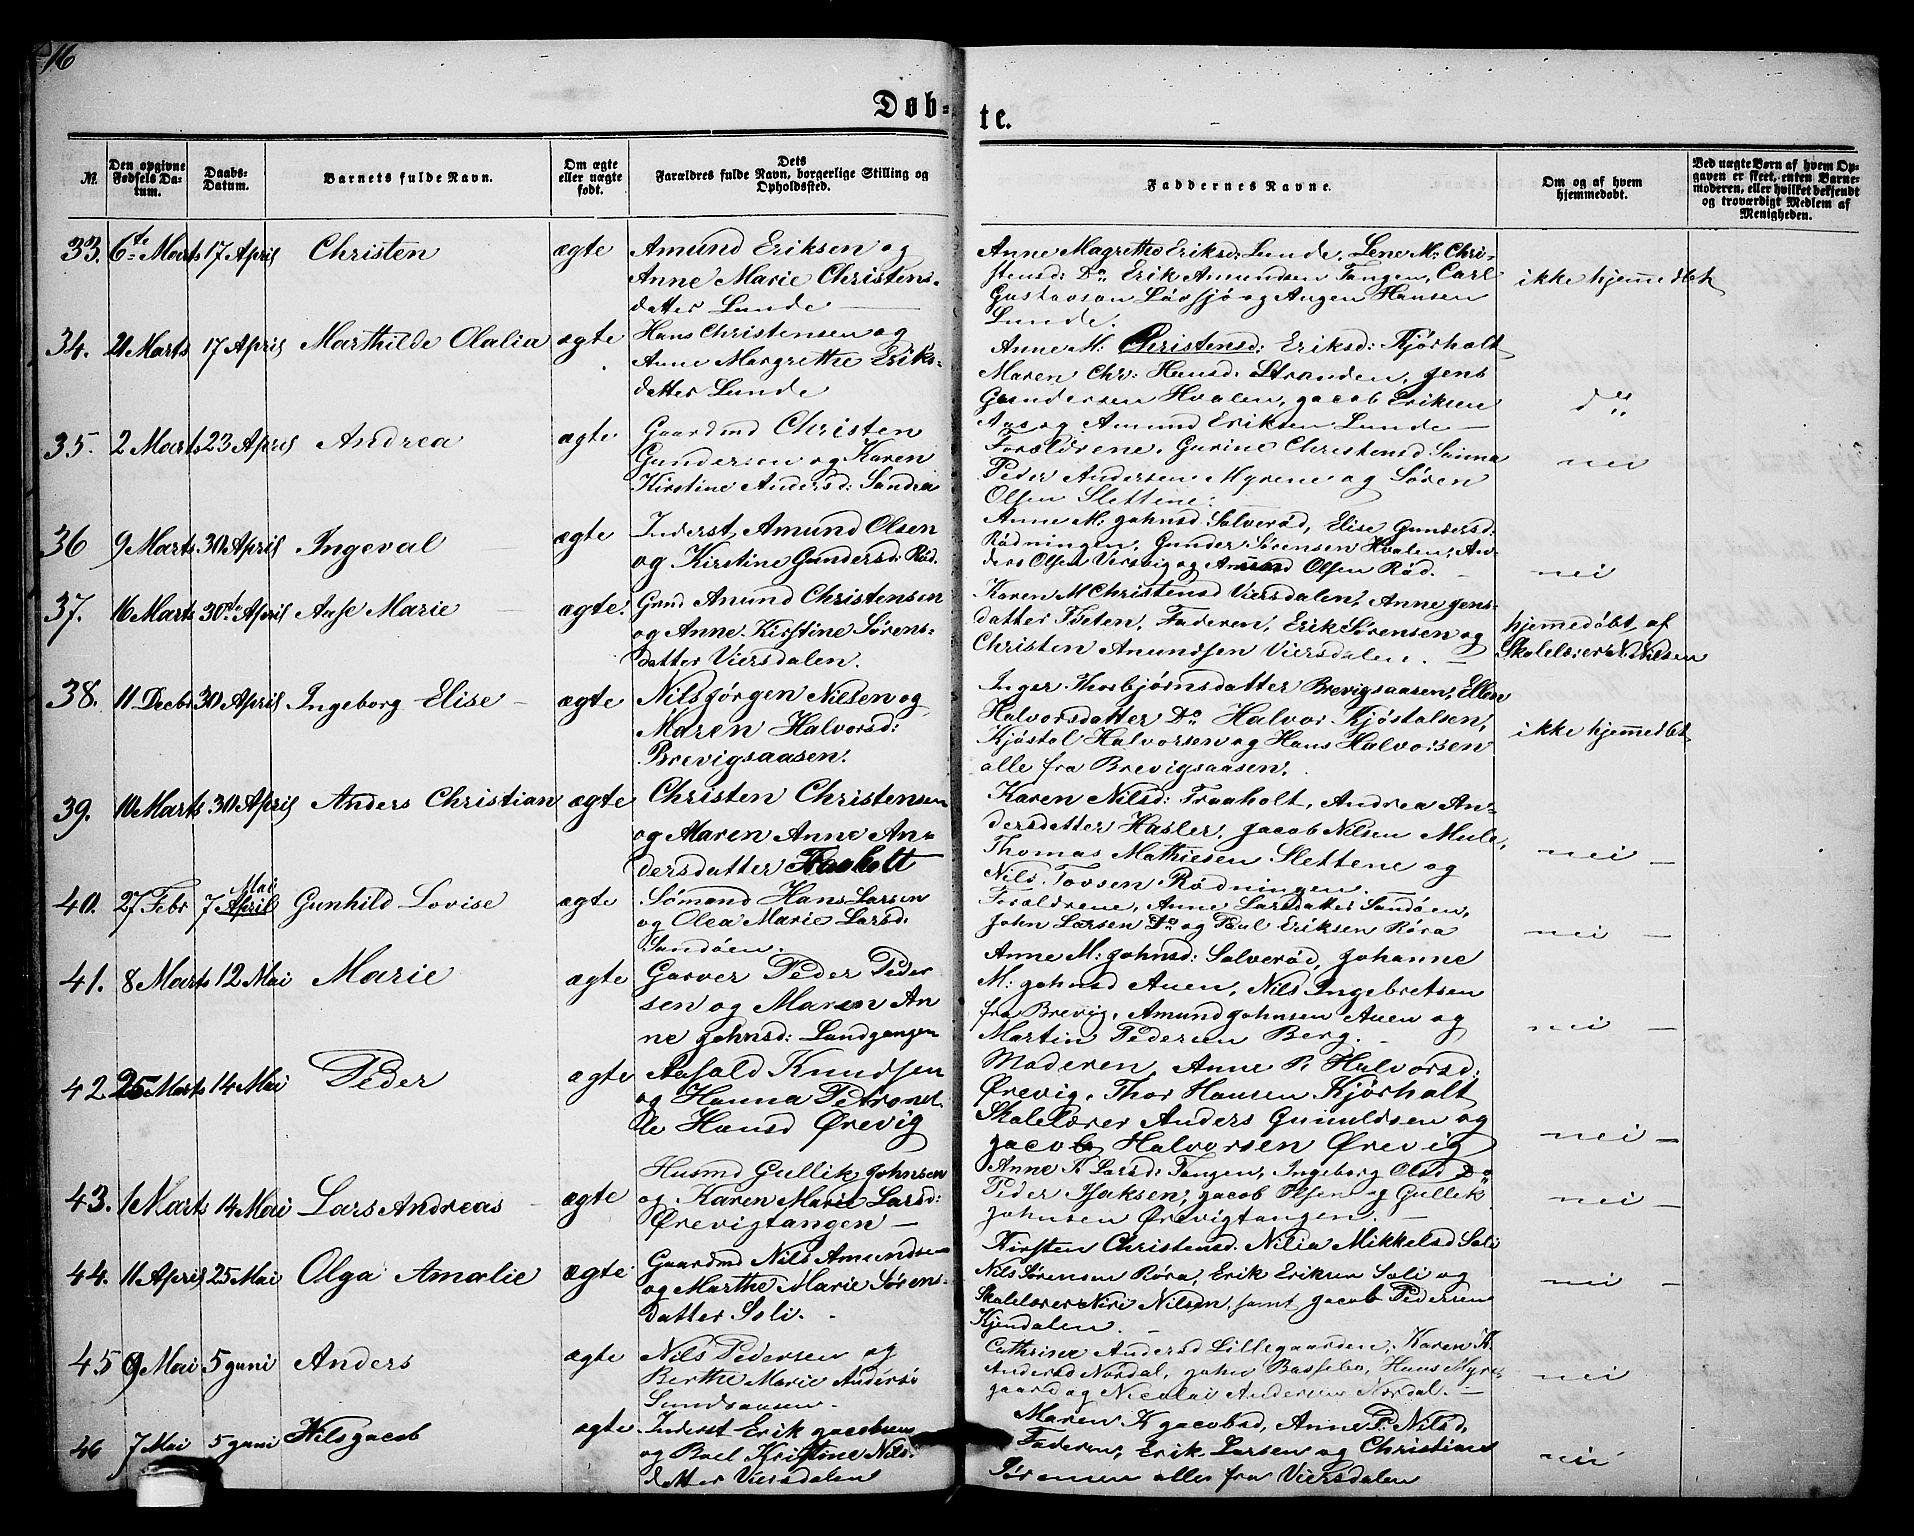 16
Døb-
te.
№
Den opgivne Fødsels Datum.
Daabs-Datum.
Barnets fulde Navn.
Om ægte eller uægte født.
Dets Forældres fulde Navn, borgerlige Stilling og Opholdssted.
Faddernes Navne.
Om og af hvem hjemmedøbt.
Ved uægte Børn af hvem Opgaven er skeet, enten Barnemoderen, eller hvilket bekjendt og troværdigt Medlem af Menigheden.
33. 6te Marts 17 April Christen ægte
Amund Eriksen og
Anne Marie Christens-
datter Lunde
Anne Magrethe Eriksd: Lunde, Lene M: Chri-
stensd: Do Erik Amundsen Tangen, Carl
Gustavson Løvsjø og Augen Hansen
Lunde.
ikke hjemmedøbt
34. 21 Marts 17 April Marthilde Olalia ægte
Hans Christensen og
Anne Margrethe Eriks-
datter Lunde
Anne M: Christensd: Eriksd: Kjørholt
Maren Chr: Hansd: Stranden, Jens
Gundersen Hvalen, Jacob Eriksen
Aas og Amund Eriksen Lunde
do
35. 2 Marts 23 April Andrea ægte
Gaardmd Christen
Gundersen og Karen
Kirstine Andersd: Sandøa
Forældrene, Gurine Christensd
Peder Andersen Myrene og Søren
Olsen Slettene.
nei
36 9 Marts 30 April Ingeval ægte
Inderst Amund Olsen
og Kirstine Gundersd: Rød.
Anne M: Johnsd: Salverød, Elise Gundersd:
Rødningen, Gunder Sørensen Hvalen, An-
ders Olsen Versvig og Amund Olsen Rød.
nei
37. 16 Marts 30te April Aase Marie ægte.
Grmd Anund Christensen
og Anne Kirstine Sørens-
datter Viersdalen.
Karen M Christensd Viersdalen, Anne Jens-
datter Tveten, Faderen, Erik Sørensen og
Christen Anundsen Viersdalen.
hjemmedøbt af
Skolelærer N. Nilsen
38. 11 Decbr 30 April Ingeborg Elise ægte
Nils Jørgen Nilsen og
Maren Halvorsd:
Brevigsaasen.
Inger Thorbjørnsdatter Brevigsaasen, Ellen
Halvorsdatter Do Halvor Kjøstolsen,
Kjøstol Halvorsen og Hans Halvorsen
alle fra Brevigsaasen.
ikke hjemmedøbt
39. 10 Marts 30 April Anders Christian ægte
Christen Christensen
og Maren Anne An-
dersdatter Traaholt
Karen Nilsd: Traaholt, Andrea An-
dersdatter Hasler, Jacob Nilsen Mule,
Thomas Mathiesen Slettene og
Nils Tovsen Rødningen.
nei
40. 27 Febr 7 April Mai Gunhild Lovise ægte
Sømand Hans Larsen
og Olea Marie Larsd:
Sandøen.
Forældrene, Anne Larsdatter Sandøen,
John Larsen Do og Paul Eriksen Røra
nei
41. 8 Marts 12 Mai Marie ægte
Garver Peder Peder
sen og Maren An
ne Johnsd: Landgangen
Anne M: Johnsd: Salverød, Johanne
M: Johnsd Auen, Nils Ingebretsen
fra Brevig, Amund Johnsen Auen og
Martin Pedersen Berg.
nei
42 25 Marts 14 Mai Peder ægte
Aasold Knudsen
og Hanna Petronel
le Hansd Ørevig
Moderen, Anne P. Halvorsd:
Ørevig, Thor Hansen Kjørholt
Skolelærer Anders Gunuldsen og
Jacob Halvorsen Ørevig
nei
43. 1 Marts 14 Mai Lars Andreas ægte
Husmd Gullik Johnsen
og Karen Marie Larsd:
Ørevigtangen
Anne K Larsd: Tangen, Ingeborg Olsd Do
Peder Isaksen, Jacob Olsen og Gullik
Johnsen Ørevigtangen.
nei
44. 11 April 25 Mai Olga Amalie ægte
Gaardmd Nils Amundsen
og Marthe Marie Sørens-
datter Soli.
Kirsten Christensd. Nilia Mikkelsd Soli
Nils Sørensen Røra, Erik Eriksen Soli og
Skolelærer Niri Nilsen, samt Jacob Pedersen
Kjendalen.
nei
45 9 Mai 5 Juni Anders ægte
Nils Pedersen og
Berthe Marie Andersd
Sundsaasen
Cathrine Andersd Lillegaarden, Karen K.
Andersd Nordal, John Bassebo, Hans Myre-
gaard og Nicolai Andersen Nordal.
nei
46 7 Mai 5 Juni Nils Jacob ægte
Inderst Erik Jacobsen
og Boel Kristine Nils-
datter Viersdalen
Maren K Jacobsd, Anne P. Nilsd,
Faderen, Erik Larsen og Christine
Sørensen alle fra Viersdalen
nei